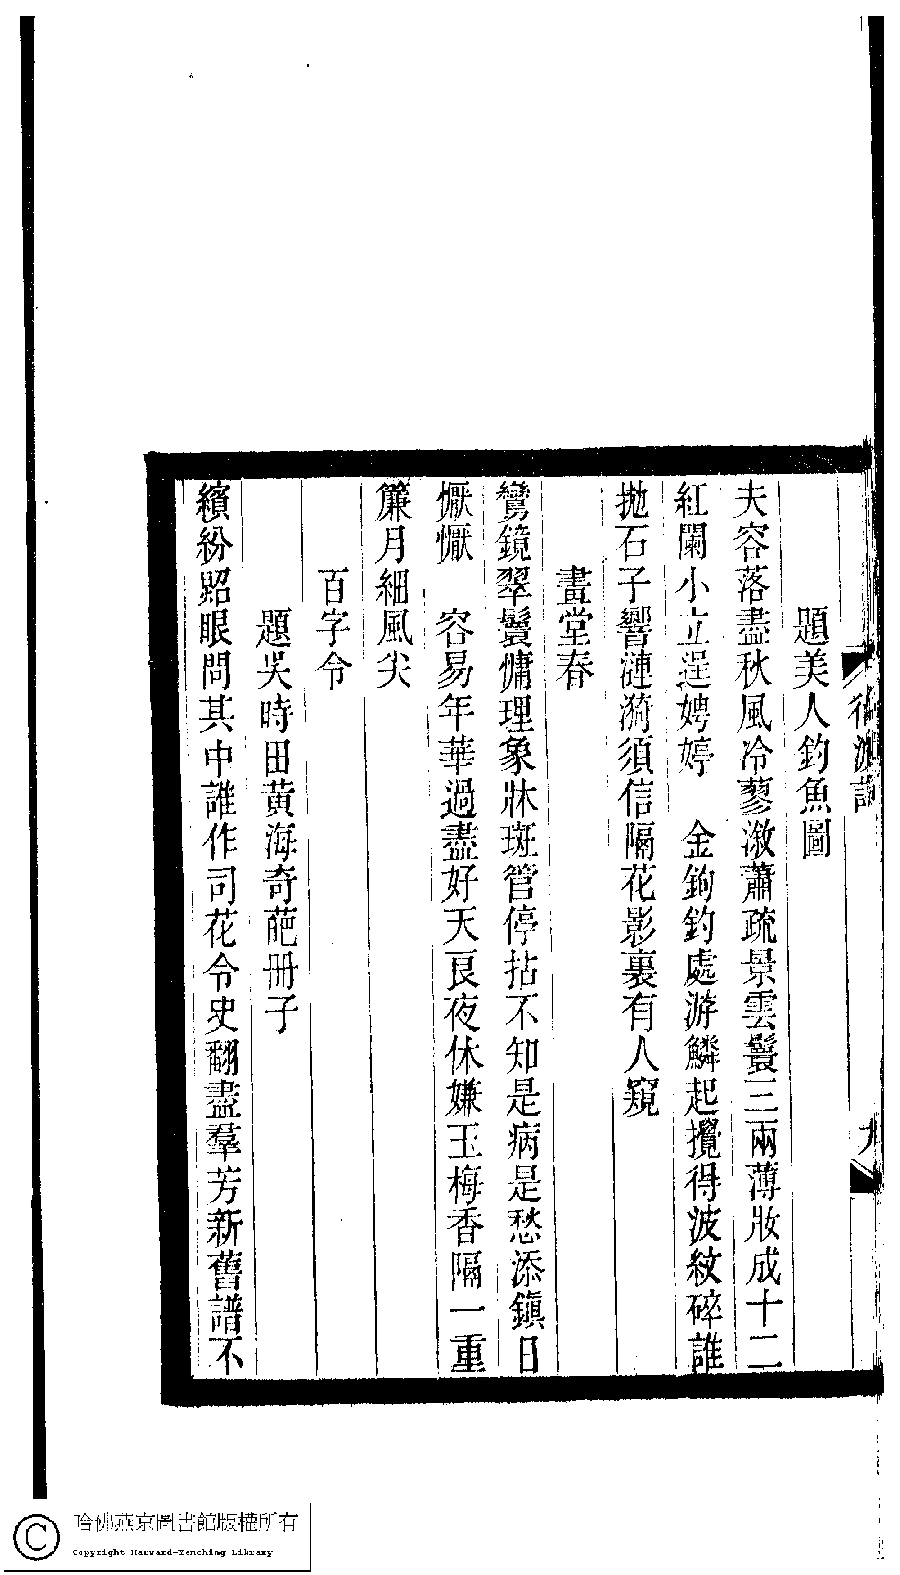 題美人釣魚圖
夫容落盡秋風冷蓼漵蕭疏景雲鬟三兩薄妝成十二
紅闌小立逞娉婷　金鉤釣處游鱗起攪得波紋碎誰
拋石子響漣漪須信隔花影裏有人窺
畫堂春
鸞鏡翠鬟慵理象牀斑管停拈不知是病是愁添鎮日
懨懨　容易年華過盡好天良夜休嫌玉梅香隔一重
簾月細風尖
百字令
題吳時田黃海奇葩冊子
繽紛照眼問其中誰作司花令史翻盡羣芳新舊譜不
哈佛燕京圖書館版權所有
Copyright Harvard-Yenching Library